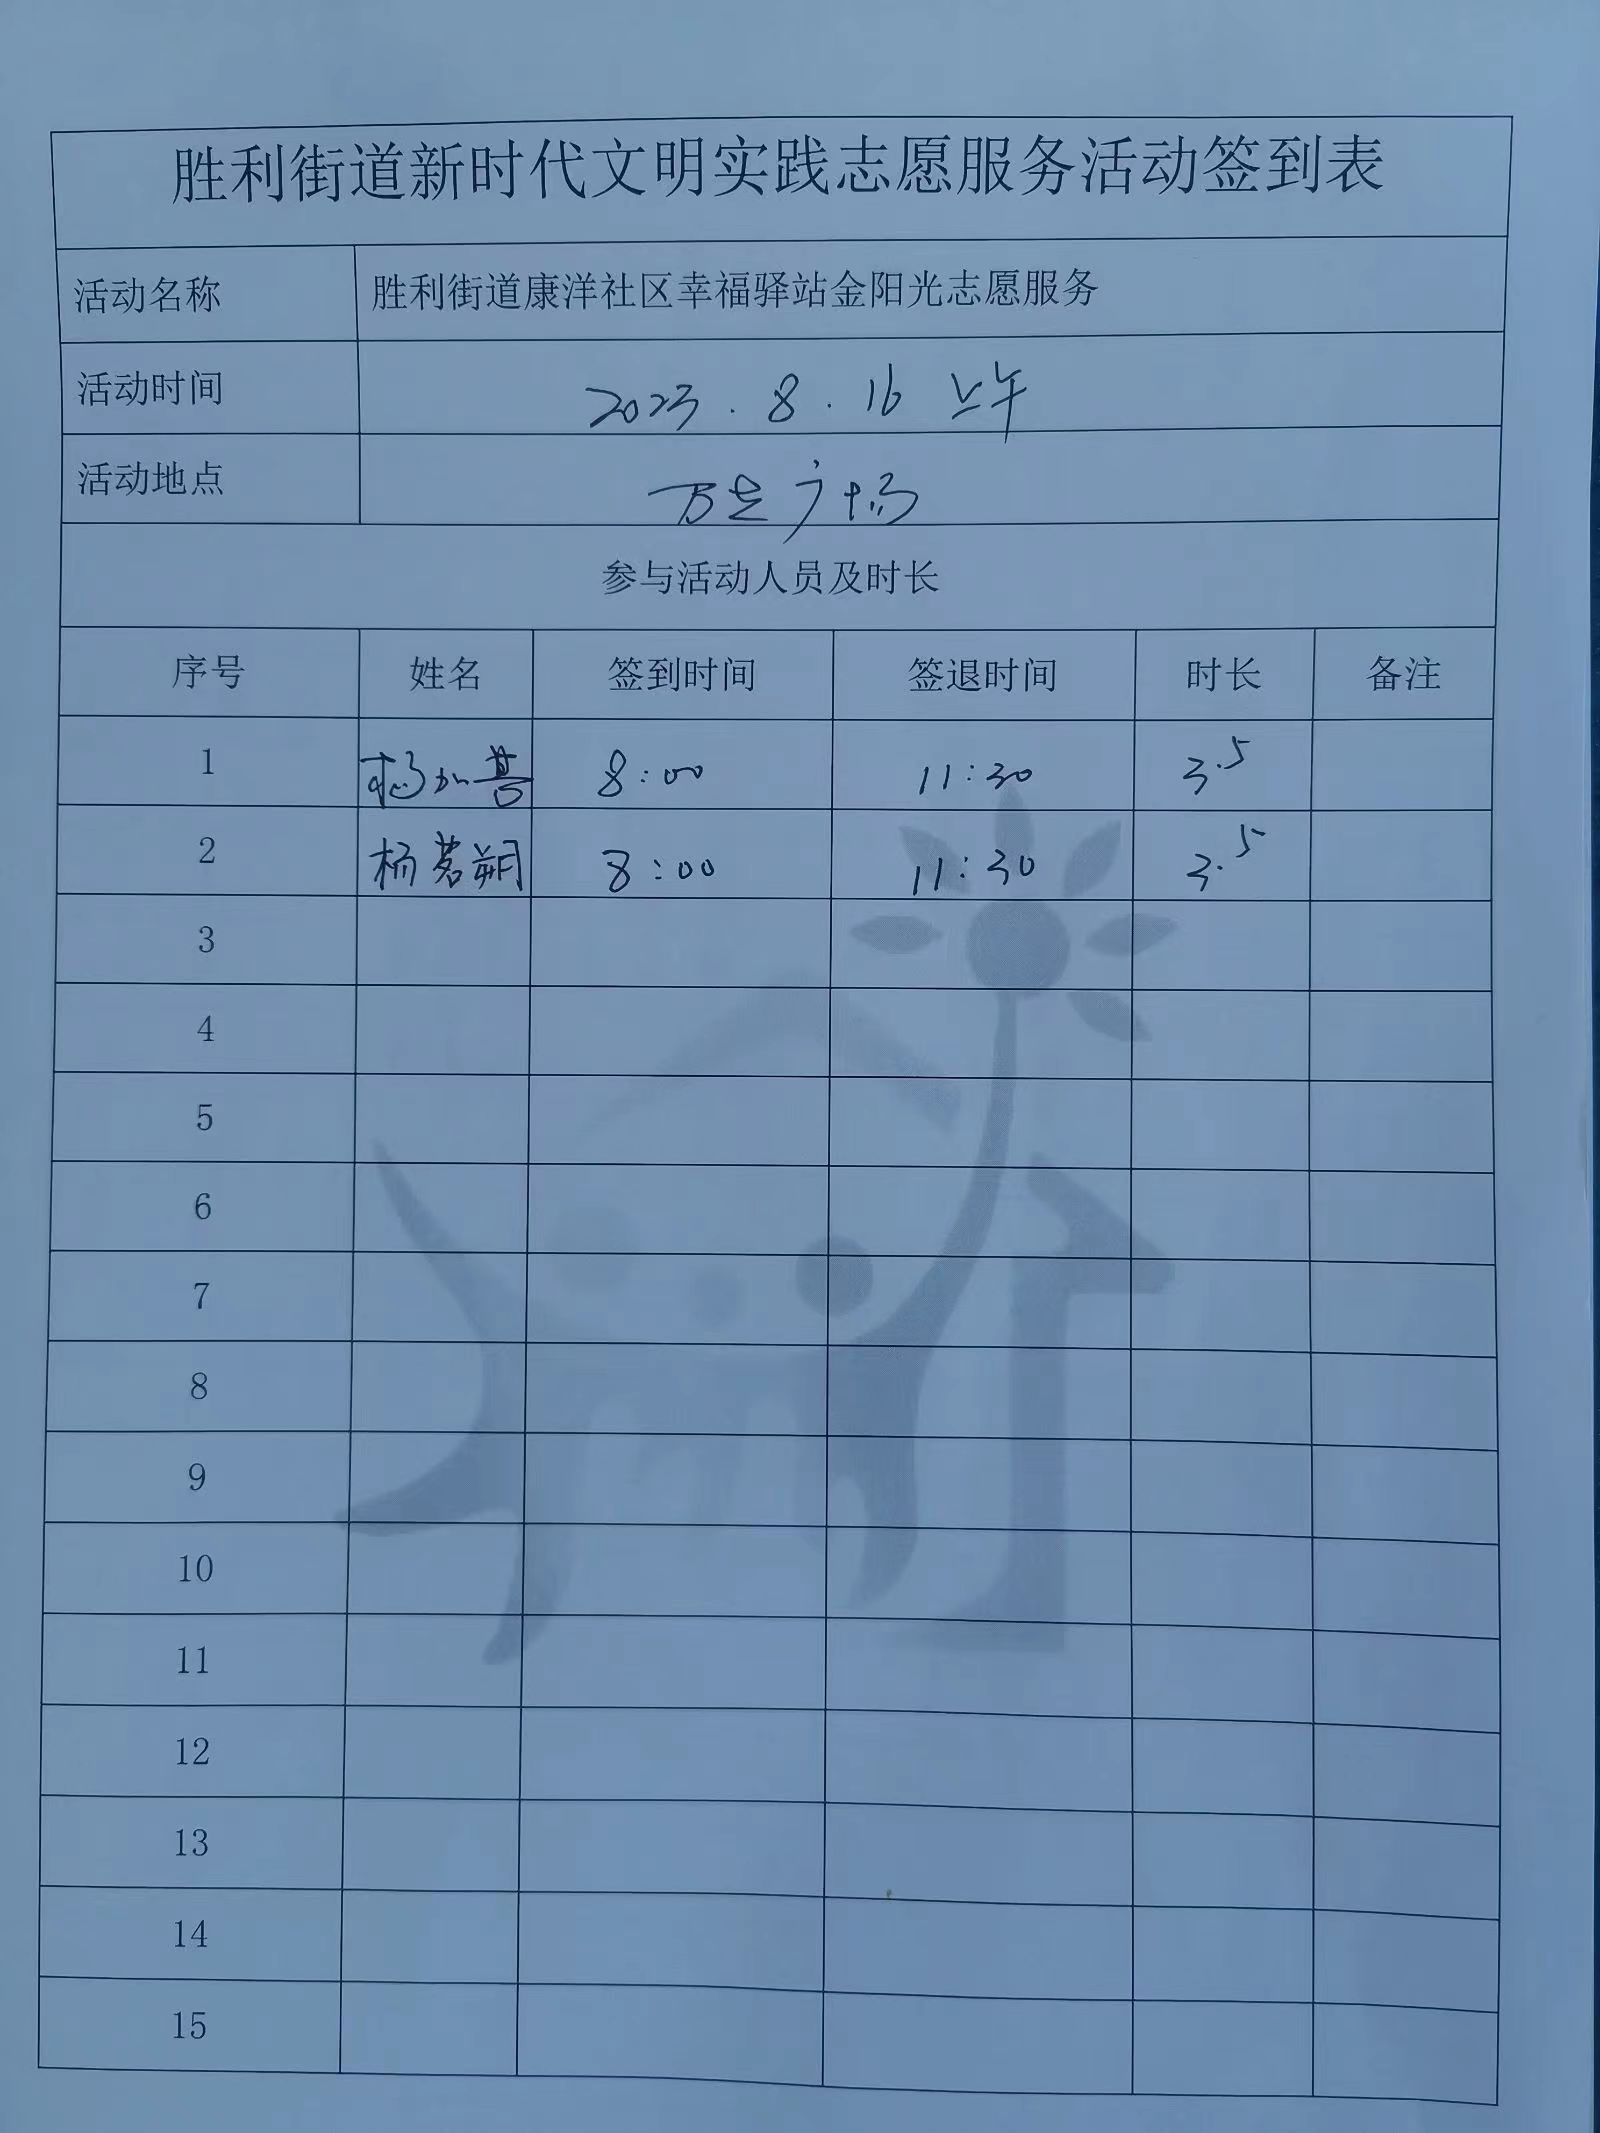 胜利街道新时代文明实践志愿服务活动签到表
活动名称 胜利街道康洋社区幸福驿站金阳光志愿服务
活动时间 2023.8.16 上午
活动地点 万达广场
参与活动人员及时长
序号 姓名 签到时间 签退时间 时长 备注
1 杨加 8:00 11:30 3.5
2 杨茗朔 8:00 11:30 3.5
3
4
5
6
7
8
9
10
11
12
13
14
15